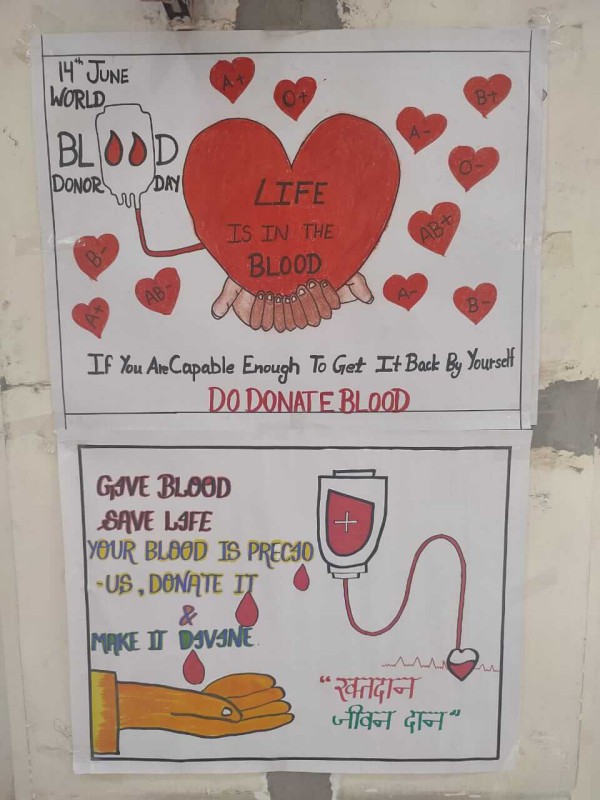 14th JUNE
WORLD
BLOOD
DONOR DAY
A+
O+
B+
A-
O-
AB+
LIFE
IS IN THE
BLOOD
B-
AB-
A+
A-
B-
If You Are Capable Enough To Get It Back By Yourself
DO DONATE BLOOD
GIVE BLOOD
SAVE LIFE
YOUR BLOOD IS PRECIO
-US, DONATE IT
&
MAKE IT DIVINE.
"रक्तदान
जीवन दान"